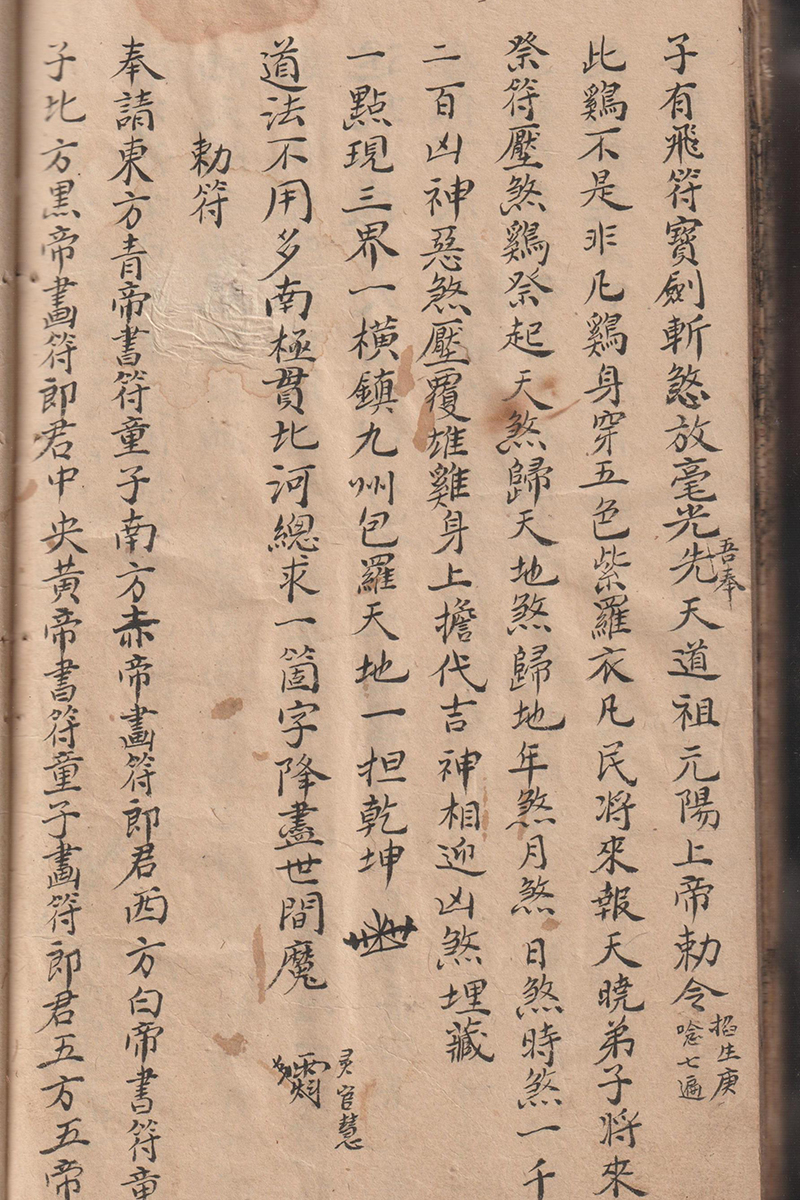 子有飛符寶劍斬煞放毫光先天道祖元陽上帝勅令
吾奉
生庚
唸七遍
此鷄不是非凡鷄身穿五色紫羅衣凡民将來報天曉弟子将來
祭符壓煞鷄祭起天煞歸天地煞歸地年煞月煞日煞時煞一千
二百凶神惡煞壓覆雄雞身上擔代吉神相迎凶煞埋藏
一點現三界一橫鎮九州包羅天地一担乾坤
灵官慧
道法不用多南極貫北河總求一箇字降盡世間魔
勅符
奉請東方青帝書符童子南方赤帝畵符郎君西方白帝書符童
子北方黒帝畵符郎君中央黄帝書符童子畵符郎君五方五帝